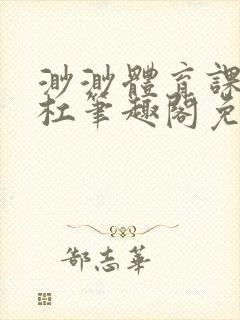 渺渺體育課
杜筆趣閣免
郜志華